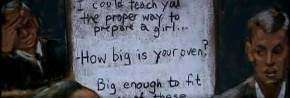 I could teach you
the proper way to
prepare a girl...
-How big is your oven?
Big enough to fit
of these